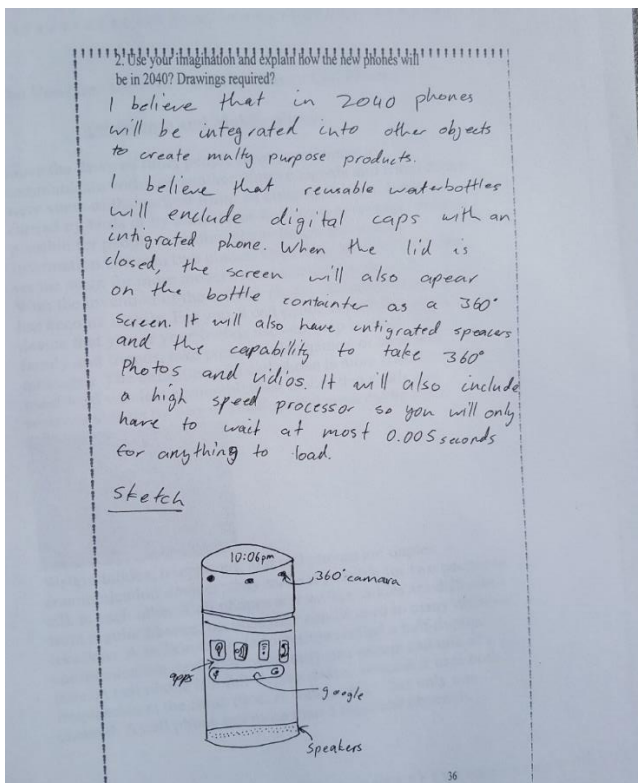 2. Use your imagination and explain how the new phones will
be in 2040? Drawings required?
I believe that in 2040 phones
will be integrated into other objects
to create multy purpose products.
I believe that reusable waterbottles
will enclude digital caps with an
intigrated phone. When the lid is
closed, the screen will also apear
on the bottle containter as a 360°
screen. It will also have intigrated speacers
and the capability to take 360°
Photos and vidios. It will also include
a high speed processor so you will only
have to wait at most 0.005 seconds
for anything to load.
Sketch
10:06pm
360° camara
apps
G
google
speakers
36